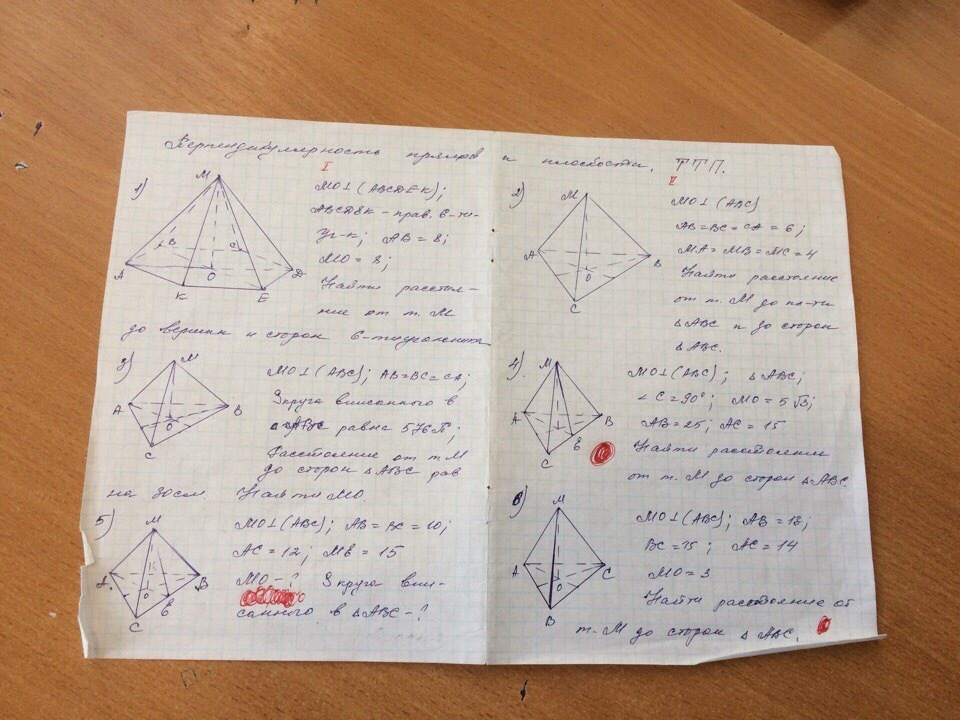 Перпендикулярность прямой и плоскости. ТТП.
I
1)
M
B
C
A
O
D
K
E
MO⊥(ABCDEK);
ABCDEK - прав. 6-ти-
уг-к; AB = 8;
MO = 8;
Найти расстоя-
ние от т. M
до вершин и сторон 6-тиугольника
3)
M
A
B
O
C
MO⊥(ABC); AB=BC=CA;
Sкруга вписанного в
△ABC равна 576π;
Расстояние от т M
до сторон △ABC рав
Найти MO.
5)
M
A
B
O
E
C
MO⊥(ABC); AB = BC = 10;
AC = 12; ME = 15
MO - ? Sкруга впи-
санного в △ABC - ?
II
2)
M
A
B
O
C
MO⊥(ABC)
AB=BC=CA = 6;
MA = MB = MC = 4
Найти расстояние
от т. M до пл-ти
△ABC и до сторон
△ABC.
4)
M
A
B
O
E
C
MO⊥(ABC); △ABC;
∠C=90°; MO = 5√3;
AB = 25; AC = 15
Найти расстояние
от т. M до сторон △ABC.
6)
M
A
C
O
B
MO⊥(ABC); AB = 13;
BC = 15; AC = 14
MO = 3
Найти расстояние от
т. M до сторон △ABC.